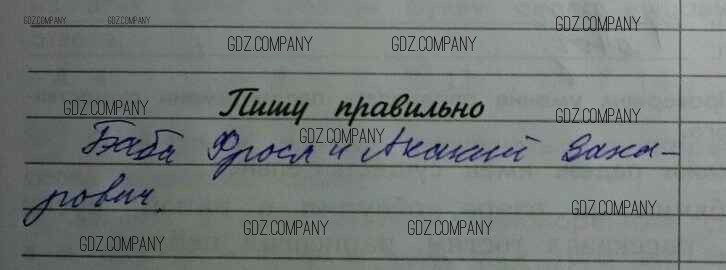 GDZ.COMPANY GDZ.COMPANY GDZ.COMPANY
GDZ.COMPANY GDZ.COMPANY
GDZ.COMPANY Пишу правильно GDZ.COMPANY
GDZ.COMPANY
Баба Фрося и Акакий Заха-
рович.
GDZ.COMPANY
GDZ.COMPANY GDZ.COMPANY GDZ.COMPANY